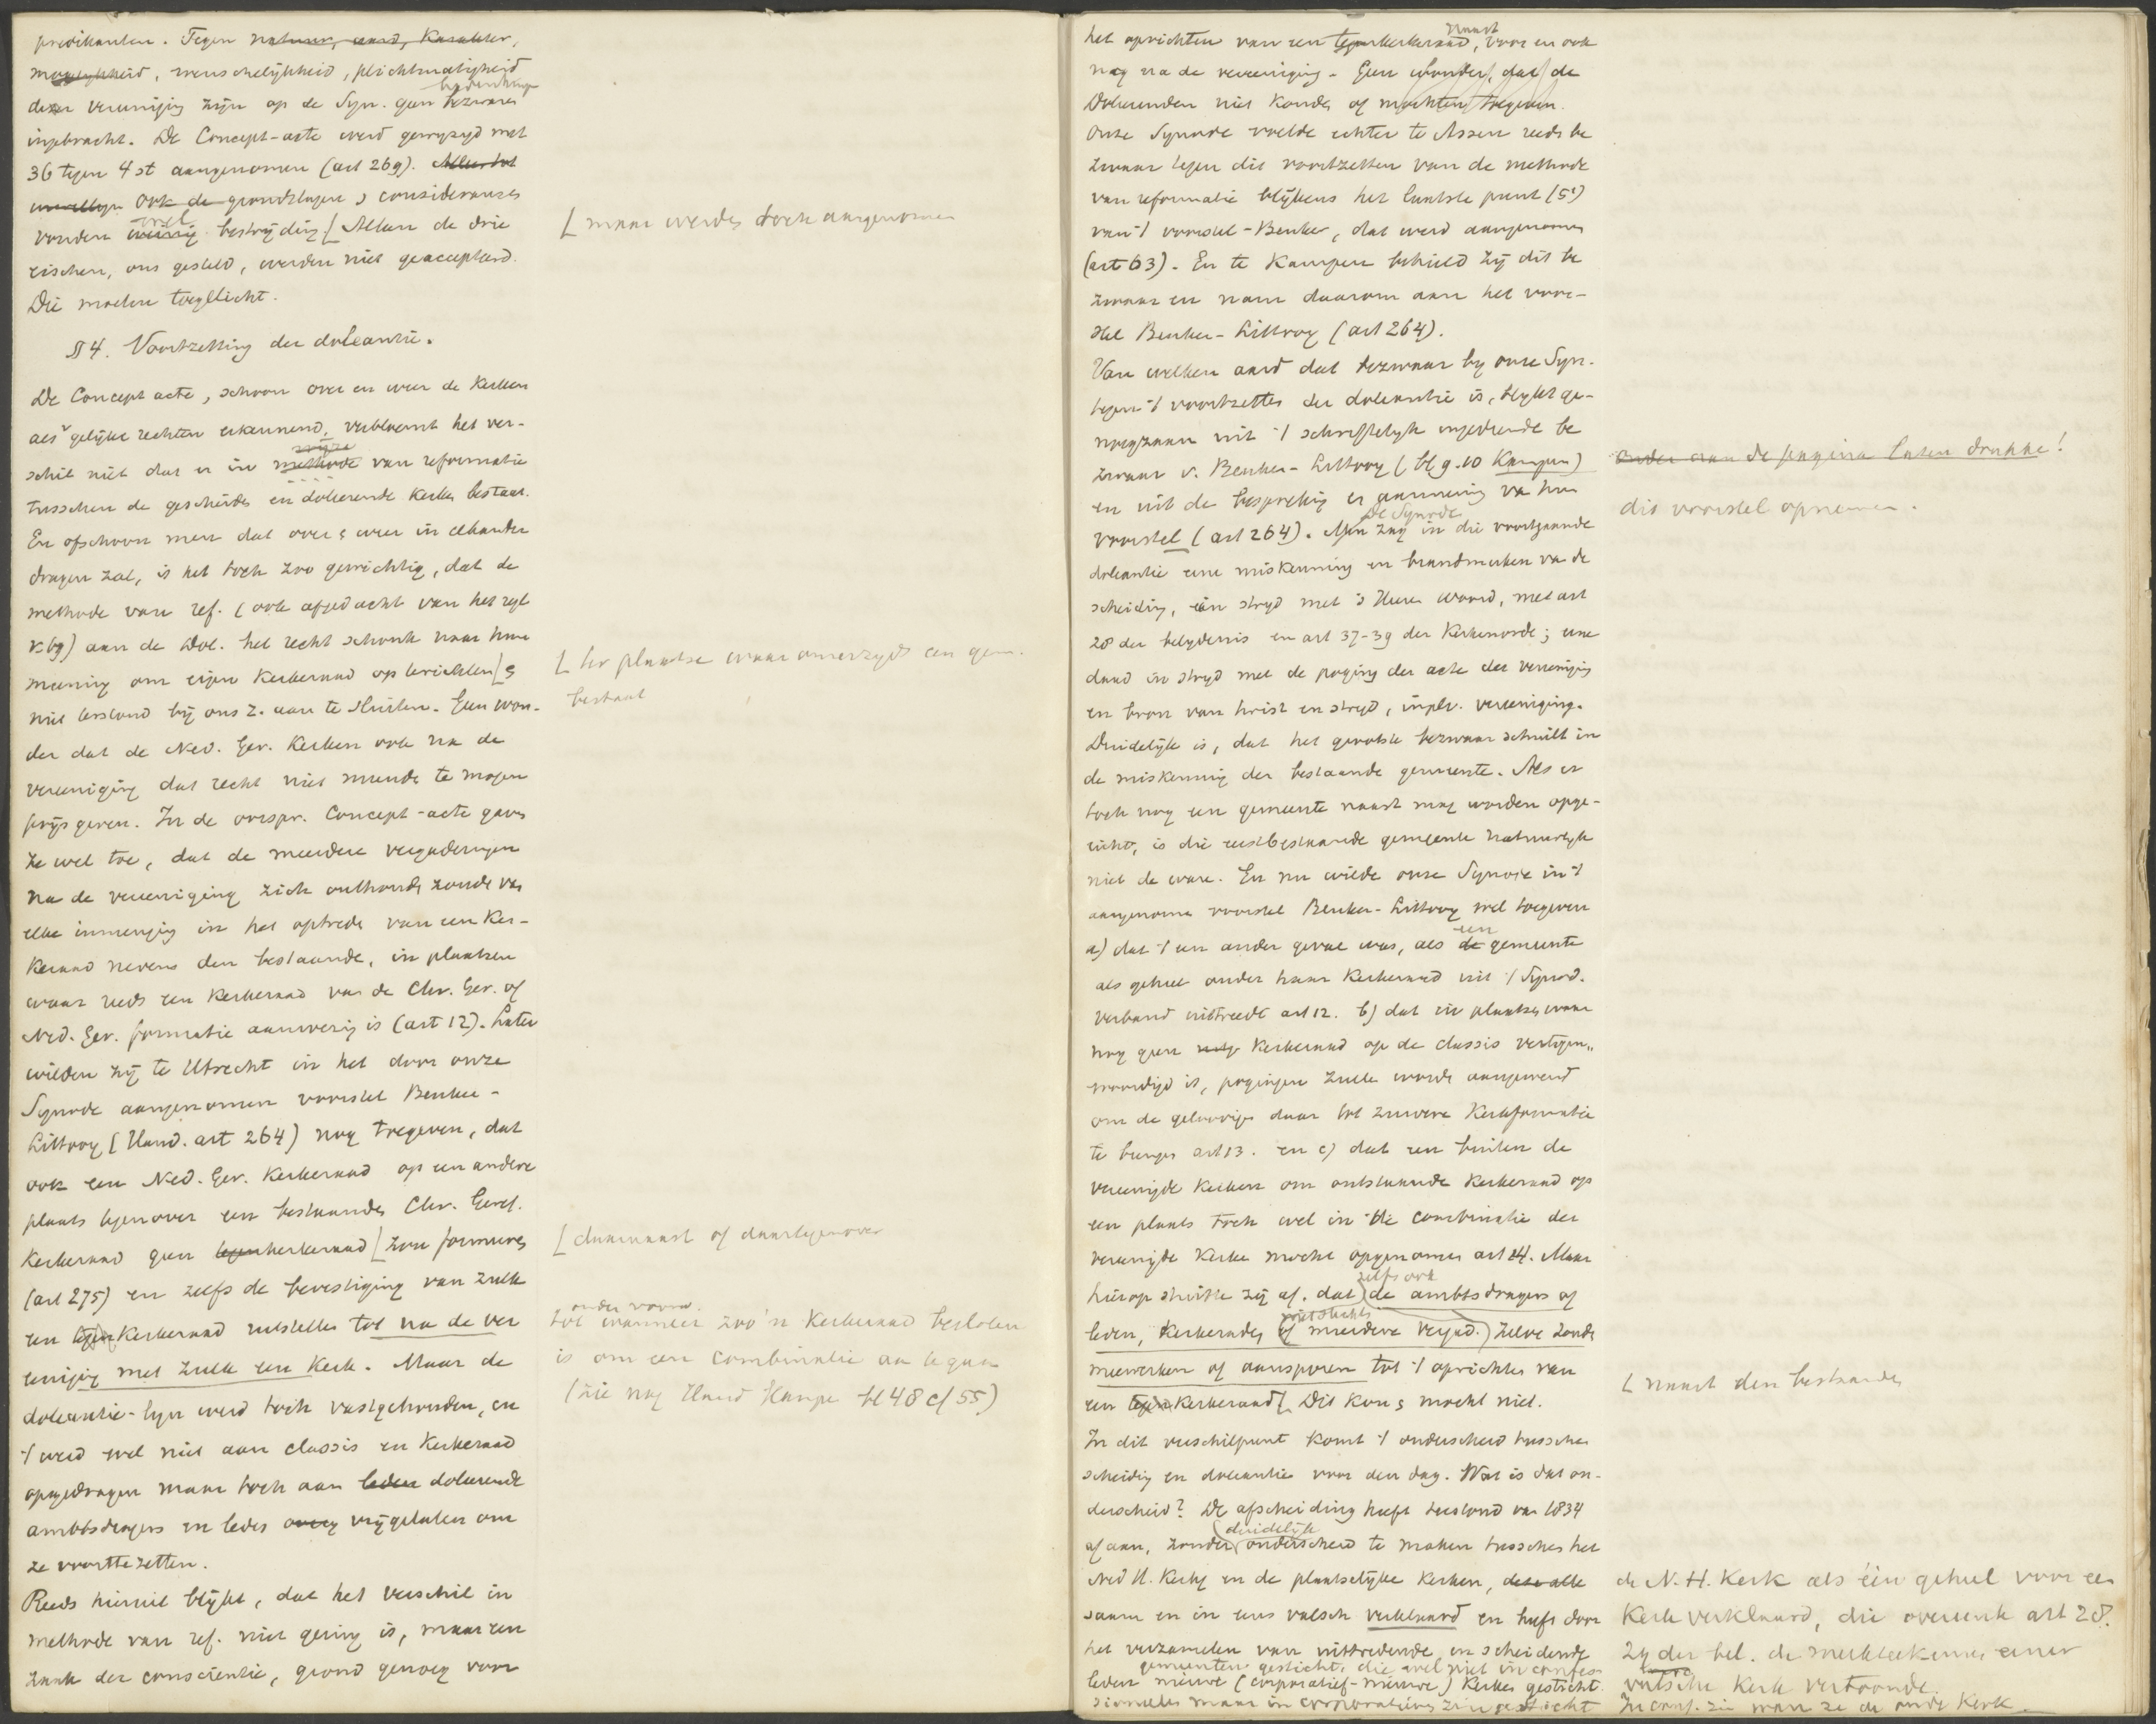 predikanten. Tegen natuur, aard, karakter,
mogelijkheid, wenschelijkheid, plichtmatigheid
dezer vereeniging zijn op de Syn. geen bezwaren
bedenkingen
ingebracht. De Concept-acte werd gewijzigd met
36 tegen 4 st aangenomen (art 269).
ook de grondslagen & consideransen
vonden weinig bestrijding [ Alleen de drie
veel
[ maar werden toch aangenomen
eischen, ons gesteld, werden niet geaccepteerd.
Die moeten toegelicht.
§ 4. Voortzetting der doleantie.
De Concept acte, schoon over en weer de Kerken
als gelijke rechten erkennend, verbloemt het ver-
schil niet dat er in methode van reformatie
wijze
tusschen de gescheiden en doleerende kerken bestaat.
En ofschoon men dat over & weer in elkander
dragen zal, is het toch zoo gewichtig, dat de
methode van ref. (ook afgedacht van het regl
v. 69) aan de Dol. het recht schonk naar hun
meening om eigen Kerkeraad op te richten [ &
[ ter plaatse waar onzerzijds een gem.
bestaat
niet terstond bij ons z. aan te sluiten. Geen won-
der dat de Ned. Ger. Kerken ook na de
vereeniging dat recht niet meende te mogen
prijs geven. In de oorspr. Concept-acte gaven
ze wel toe, dat de meerdere vergaderingen
na de vereeniging zich onthouden zouden van
elke inmenging in het optreden van een Ker-
keraad nevens den bestaande, in plaatsen
waar reeds een Kerkeraad van de Chr. Ger. of
Ned. Ger. formatie aanwezig is (art 12). Later
wilden zij te Utrecht in het door onze
Synode aangenomen voorstel Beuker-
Littooy (Hand. art 264) nog toegeven, dat
ook een Ned. Ger. Kerkeraad op een andere
plaats tegenover een bestaanden Chr. Geref.
Kerkeraad geen tegenkerkeraad [ zou formeeren
[ daarnaast of daartegenover
(art 275) en zelfs de bevestiging van zulk
een tegenKerkeraad uitstellen tot na de ver
onder voorw.
tot wanneer zoo'n Kerkeraad besloten
eeniging met zulk een Kerk. Maar de
is om een combinatie aan te gaan
(zie nog Hand Kampen bl 48 c/ 55)
doleantie-lijn werd toch vastgehouden, en
't werd wel niet aan classis en Kerkeraad
opgedragen maar toch aan leden doleerende
ambtsdragers en leden vrijgelaten om
ze voort te zetten.
Reeds hieruit blijkt, dat het verschil in
methode van ref. niet gering is, maar een
zaak der conscientie, grond genoeg voor
het oprichten van een tegenkerkeraad, voor en ook
naast
nog na de vereeniging. Geen wonder, dat de
Doleerenden niet konden of mochten toegeven.
Onze Synode voelde echter te Assen reeds be
zwaar tegen dit voortzetten van de methode
van reformatie blijkens het laatste punt (5e)
van 't voorstel-Beuker, dat werd aangenomen
(art 63). En te Kampen behield zij dit be
zwaar en nam daarom aan het voor-
stel Beuker-Littooy (art 264).
Van welken aard dat bezwaar bij onze Syn.
tegen 't voortzetten der doleantie is, blijkt ge-
noegzaam uit 't schriftelijk ingediende be
zwaar v. Beuker-Littooy (bl g. 10 Kampen)
onder aan de pagina laten drukken!
en uit de bespreking en aanneming van hun
dit voorstel opnemen.
voorstel (art 264). Men zag in die voortgaande
De Synode
doleantie eene miskenning en brandmerken van de
scheiding, een strijd met 's Heeren woord, met art
28 der belydenis en art 37-39 der Kerkenorde; eene
daad in strijd met de poging der acte der vereeniging
en bron van twist en strijd, inpl. v. vereeniging.
Duidelijk is, dat het grootste bezwaar schuilt in
de miskenning der bestaande gemeente. Als er
toch nog een gemeente naast mag worden opge-
richt, is die eerstbestaande gemeente natuurlijk
niet de ware. En nu wilde onze Synode in 't
aangenomen voorstel Beuker-Littooy wel toegeven
a) dat 't een ander geval was, als de gemeente
een
als geheel onder haar Kerkeraad uit 't Synod.
verband uittreedt art 12. b) dat in plaatsen waar
nog geen Kerkeraad op de classis vertegen-
woordigd is, pogingen zullen worden aangewend
om de geloovigen daar tot zuivere Kerkformatie
te brengen art 13. en c) dat een buiten de
vereenigde Kerken om ontstaande Kerkeraad op
een plaats toch wel in de combinatie der
vereenigde Kerken mocht opgenomen art 24. Maar
hierop stuitte zij af, dat de ambtsdragers of
zelfs ook
leden, Kerkeraden of meerdere vergad. zelve zouden
meewerken of aansporen tot 't oprichten van
een tegenKerkeraad [ Dit kon & mocht niet.
[ naast den bestaanden
In dit verschilpunt komt 't onderscheid tusschen
scheiding en doleantie voor den dag. Wat is dat on-
derscheid? De afscheiding heeft terstond van 1834
af aan, zonder onderscheid te maken tusschen het
duidelijk
Ned H. Kerkg en de plaatselijke Kerken, deze alle
de N. H. Kerk als één geheel voor een
saam en in eens valsch verklaard en heeft door
Kerk verklaard, die overeenk art 28.
het verzamelen van uittredende en scheidende
29 der bel. de merkteekenen eener
gemeenten gesticht, die wel niet in confes-
leden nieuwe (corporatief-nieuwe) Kerken gesticht.
valsche Kerk vertoonde.
sioneelen maar in corporatieven zin gesticht
In conf. zin waren ze de oude Kerk